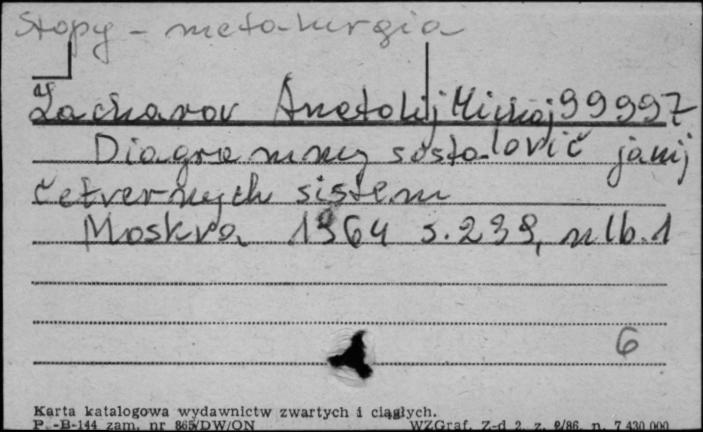 Stopy - metalurgia
Zacharov Anatolij Michaj 99997
Diagrammy sostojanij
lovič
četvernych sistem
Moskva 1964 s. 239, nlb. 1
6
Karta katalogowa wydawnictw zwartych i ciągłych.
P. -B-144 zam. nr 865/DW/ON WZGraf. Z-d 2. z. 2/86. n. 7 430 000